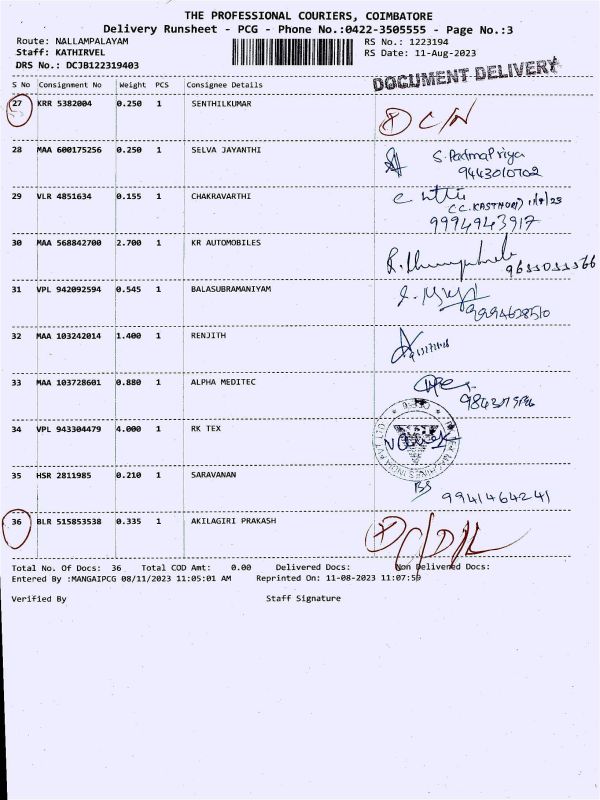 THE PROFESSIONAL COURIERS, COIMBATORE
Delivery Runsheet - PCG - Phone No.:0422-3505555 - Page No.:3
Route: NALLAMPALAYAM RS No.: 1223194
Staff: KATHIRVEL RS Date: 11-Aug-2023
DRS No.: DCJB122319403
DOCUMENT DELIVERY
S No Consignment No Weight PCS Consignee Details
27 KRR 5382004 0.250 1 SENTHILKUMAR
C/N
28 MAA 600175256 0.250 1 SELVA JAYANTHI
S. PadmaPriya
9443010702
29 VLR 4851634 0.155 1 CHAKRAVARTHI
(C.KASTHORI)
9994943917
30 MAA 568842700 2.700 1 KR AUTOMOBILES
31 VPL 942092594 0.545 1 BALASUBRAMANIYAM
9994628510
32 MAA 103242014 1.400 1 RENJITH
33 MAA 103728601 0.880 1 ALPHA MEDITEC
34 VPL 943304479 4.000 1 RK TEX
35 HSR 2811985 0.210 1 SARAVANAN
9941464241
36 BLR 515853538 0.335 1 AKILAGIRI PRAKASH
Total No. Of Docs: 36 Total COD Amt: 0.00 Delivered Docs: Non Delivered Docs:
Entered By :MANGAIPCG 08/11/2023 11:05:01 AM Reprinted On: 11-08-2023 11:07:59
Verified By Staff Signature